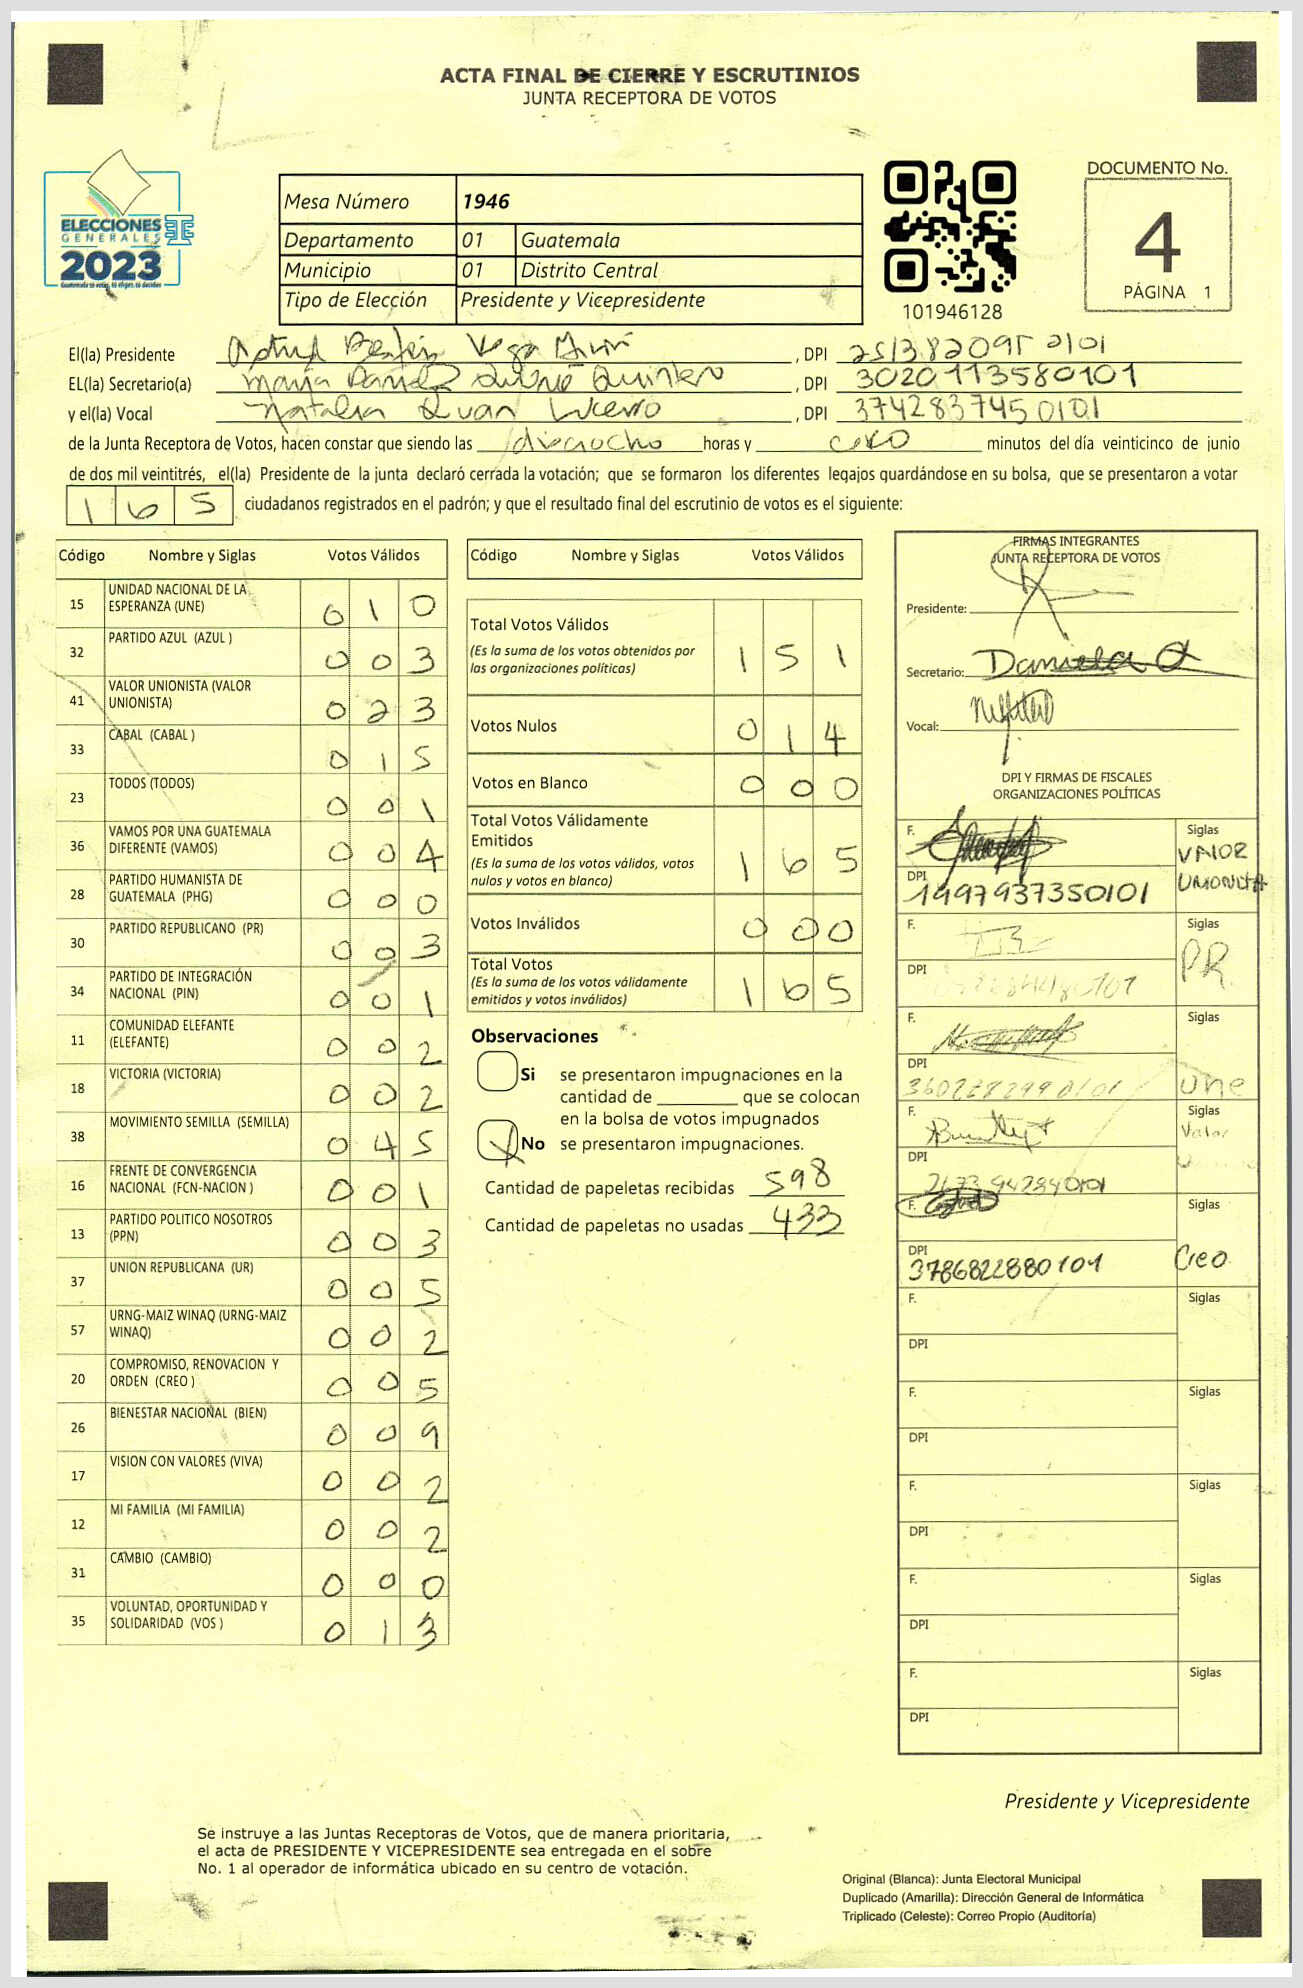 ACTA FINAL DE CIERRE Y ESCRUTINIOS
JUNTA RECEPTORA DE VOTOS
ELECCIONES
GENERALES
2023
Guatemala tú votas, tú eliges, tú decides
Mesa Número 1946
Departamento 01 Guatemala
Municipio 01 Distrito Central
Tipo de Elección Presidente y Vicepresidente
101946128
DOCUMENTO No.
4
PÁGINA 1
El(la) Presidente Vega , DPI
EL(la) Secretario(a) Quintero , DPI 3020113580101
y el(la) Vocal Natalia Lucero , DPI 3742837450101
de la Junta Receptora de Votos, hacen constar que siendo las dieciocho horas y cero minutos del día veinticinco de junio
de dos mil veintitrés, el(la) Presidente de la junta declaró cerrada la votación; que se formaron los diferentes legajos quardándose en su bolsa, que se presentaron a votar
1 6 5 ciudadanos registrados en el padrón; y que el resultado final del escrutinio de votos es el siguiente:
Código Nombre y Siglas Votos Válidos
15 UNIDAD NACIONAL DE LA ESPERANZA (UNE) 0 1 0
32 PARTIDO AZUL (AZUL ) 0 0 3
41 VALOR UNIONISTA (VALOR UNIONISTA) 0 2 3
33 CABAL (CABAL ) 0 1 5
23 TODOS (TODOS) 0 0 1
36 VAMOS POR UNA GUATEMALA DIFERENTE (VAMOS) 0 0 4
28 PARTIDO HUMANISTA DE GUATEMALA (PHG) 0 0 0
30 PARTIDO REPUBLICANO (PR) 0 0 3
34 PARTIDO DE INTEGRACIÓN NACIONAL (PIN) 0 0 1
11 COMUNIDAD ELEFANTE (ELEFANTE) 0 0 2
18 VICTORIA (VICTORIA) 0 0 2
38 MOVIMIENTO SEMILLA (SEMILLA) 0 4 5
16 FRENTE DE CONVERGENCIA NACIONAL (FCN-NACION ) 0 0 1
13 PARTIDO POLITICO NOSOTROS (PPN) 0 0 3
37 UNION REPUBLICANA (UR) 0 0 5
57 URNG-MAIZ WINAQ (URNG-MAIZ WINAQ) 0 0 2
20 COMPROMISO, RENOVACION Y ORDEN (CREO ) 0 0 5
26 BIENESTAR NACIONAL (BIEN) 0 0 9
17 VISION CON VALORES (VIVA) 0 0 2
12 MI FAMILIA (MI FAMILIA) 0 0 2
31 CAMBIO (CAMBIO) 0 0 0
35 VOLUNTAD, OPORTUNIDAD Y SOLIDARIDAD (VOS ) 0 1 3
Código Nombre y Siglas Votos Válidos
Total Votos Válidos 1 5 1
(Es la suma de los votos obtenidos por
las organizaciones políticas)
Votos Nulos 0 1 4
Votos en Blanco 0 0 0
Total Votos Válidamente
Emitidos 1 6 5
(Es la suma de los votos válidos, votos
nulos y votos en blanco)
Votos Inválidos 0 0 0
Total Votos 1 6 5
(Es la suma de los votos válidamente
emitidos y votos inválidos)
Observaciones
Si se presentaron impugnaciones en la
cantidad de ________ que se colocan
en la bolsa de votos impugnados
No se presentaron impugnaciones.
Cantidad de papeletas recibidas 598
Cantidad de papeletas no usadas 433
FIRMAS INTEGRANTES
JUNTA RECEPTORA DE VOTOS
Presidente:
Secretario: Daniela
Vocal:
DPI Y FIRMAS DE FISCALES
ORGANIZACIONES POLÍTICAS
F. Siglas
VALOR
UNIONISTA
DPI 1497937350101
F. Siglas
PR
DPI
F. Siglas
DPI une
F. Siglas
Valor
DPI
F. Siglas
DPI 3786822880101 Creo
F. Siglas
DPI
F. Siglas
DPI
F. Siglas
DPI
F. Siglas
DPI
F. Siglas
DPI
Presidente y Vicepresidente
Se instruye a las Juntas Receptoras de Votos, que de manera prioritaria,
el acta de PRESIDENTE Y VICEPRESIDENTE sea entregada en el sobre
No. 1 al operador de informática ubicado en su centro de votación.
Original (Blanca): Junta Electoral Municipal
Duplicado (Amarilla): Dirección General de Informática
Triplicado (Celeste): Correo Propio (Auditoría)